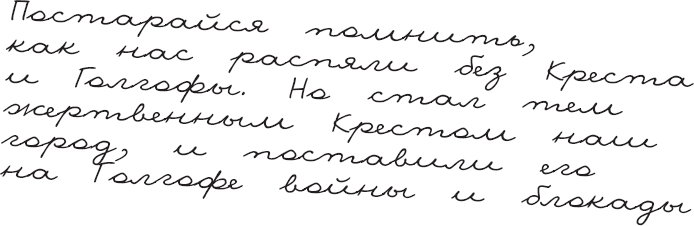 Постарайся помнить,
как нас распяли без Креста
и Голгофы. Но стал тем
жертвенным Крестом наш
город, и поставили его
на Голгофе войны и блокады